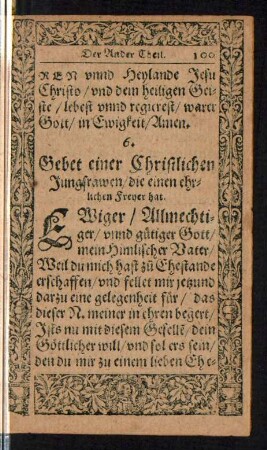 Der Ander Theil. 100
REN vnnd Heylande Jesu
Christo / vnd dem heiligen Gei-
ste / lebest vnnd regierest / warer
Gott / in Ewigkeit / Amen.
6.
Gebet einer Christlichen
Jungfrawen / die einen ehr-
lichen Freyer hat.
EWiger / Allmechti-
ger / vnnd gütiger Gott /
mein Himlischer Vater /
Weil du mich hast zů Ehestande
erschaffen / vnd fellet mir jetzund
darzu eine gelegenheit für / das
dieser N. meiner in ehren begert /
Ists nu mit diesem Gesellẽ / dein
Göttlicher will / vnd sol ers sein /
den du mir zu einem lieben Ehe-